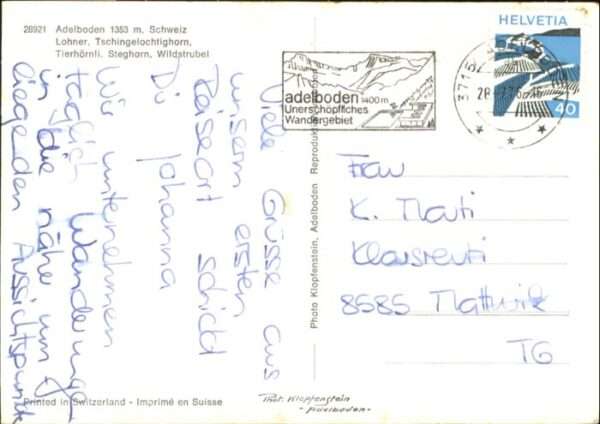 28921 Adelboden 1353 m. Schweiz
Lohner, Tschingelochtighorn,
Tierhörnli, Steghorn, Wildstrubel
Viele Grüsse aus
unserm ersten
Reiseort schickt
Dir Johanna
Wir unternehmen
täglich Wanderungen
in die nähe um
liegenden Aussichtspunkt
Printed in Switzerland - Imprimé en Suisse
Photo Klopfenstein, Adelboden
adelboden 1400 m
Unerschöpfliches
Wandergebiet
HELVETIA
40
Frau
K.
8585
TG
Phot. Klopfenstein
- Adelboden -